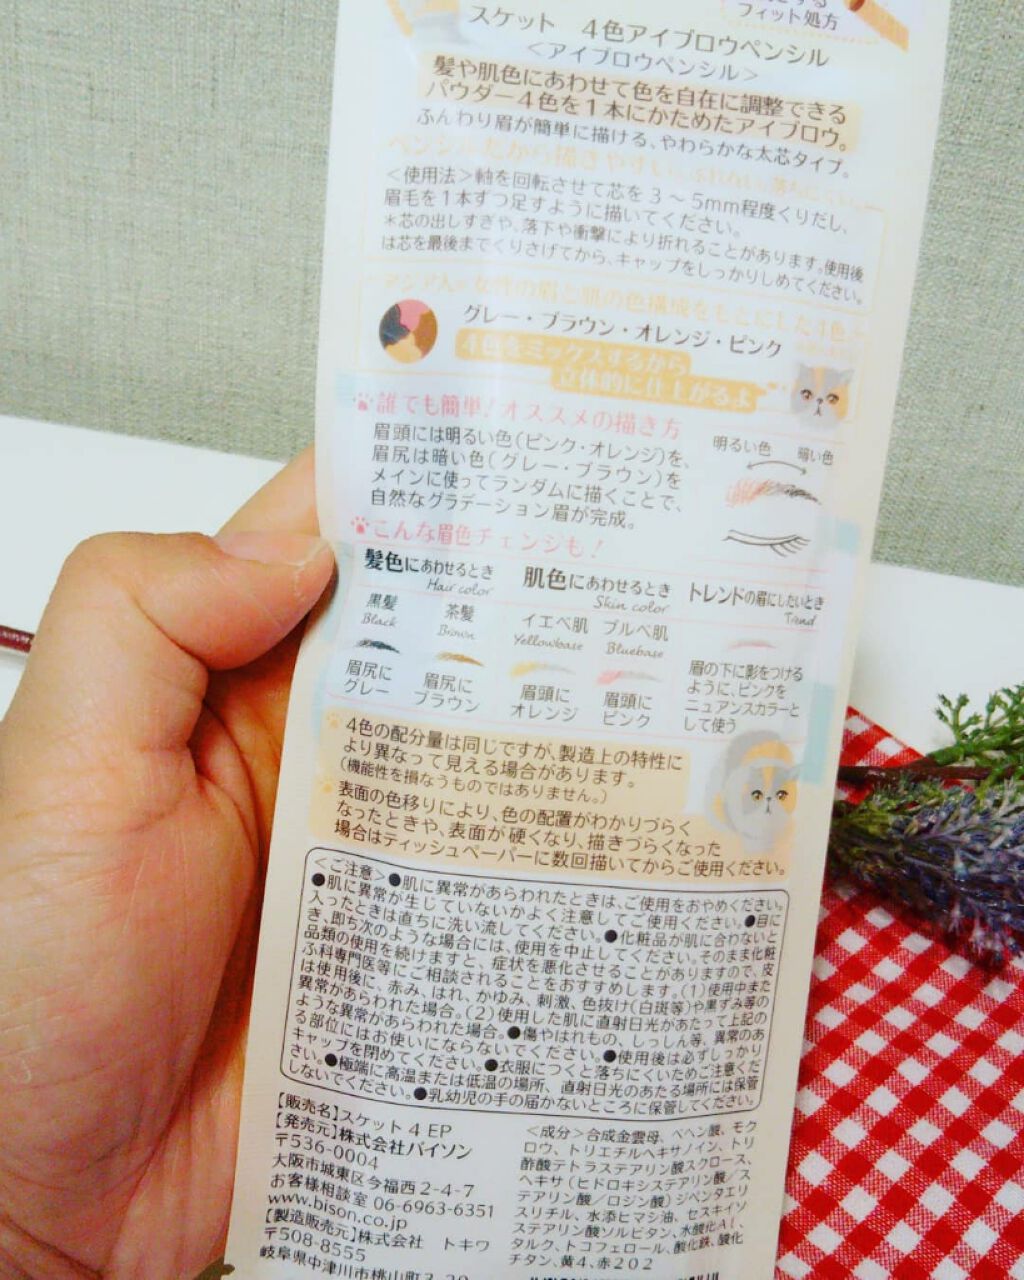 フィット処方
スケット 4色アイブロウペンシル
＜アイブロウペンシル＞
髪や肌色にあわせて色を自在に調整できる
パウダー4色を1本にかためたアイブロウ。
ふんわり眉が簡単に描ける、やわらかな太芯タイプ。
ペンシルだから描きやすい
＜使用法＞軸を回転させて芯を3～5mm程度くりだし、
眉毛を1本ずつ足すように描いてください。
＊芯の出しすぎや、落下や衝撃により折れることがあります。使用後
は芯を最後までくりさげてから、キャップをしっかりしめてください。
アジア人女性の眉と肌の色構成をもとにした4色
グレー・ブラウン・オレンジ・ピンク
4色をミックスするから
立体的に仕上がるよ
誰でも簡単！オススメの描き方
眉頭には明るい色（ピンク・オレンジ）を、
眉尻は暗い色（グレー・ブラウン）を
メインに使ってランダムに描くことで、
自然なグラデーション眉が完成。
明るい色 暗い色
こんな眉色チェンジも！
髪色にあわせるとき
Hair color
黒髪
Black
茶髪
Brown
眉尻に
グレー
眉尻に
ブラウン
肌色にあわせるとき
Skin color
イエベ肌
Yellowbase
ブルベ肌
Bluebase
眉頭に
オレンジ
眉頭に
ピンク
トレンドの眉にしたいとき
Trend
眉の下に影をつける
ように、ピンクを
ニュアンスカラーと
して使う
4色の配分量は同じですが、製造上の特性に
より異なって見える場合があります。
（機能性を損なうものではありません。）
表面の色移りにより、色の配置がわかりづらく
なったときや、表面が硬くなり、描きづらくなった
場合はティッシュペーパーに数回描いてからご使用ください。
＜ご注意＞●肌に異常があらわれたときは、ご使用をおやめください。
●肌に異常が生じていないかよく注意してご使用ください。●目に
入ったときは直ちに洗い流してください。●化粧品が肌に合わないと
き、即ち次のような場合には、使用を中止してください。そのまま化粧
品類の使用を続けますと、症状を悪化させることがありますので、皮
ふ科専門医等にご相談されることをおすすめします。（1）使用中また
は使用後に、赤み、はれ、かゆみ、刺激、色抜け（白斑等）や黒ずみ等の
異常があらわれた場合。（2）使用した肌に直射日光があたって上記の
ような異常があらわれた場合。●傷やはれもの、しっしん等、異常のあ
る部位にはお使いにならないでください。●使用後は必ずしっかり
キャップを閉めてください。●衣服につくと落ちにくいためご注意くだ
さい。●極端に高温または低温の場所、直射日光のあたる場所には保管
しないでください。●乳幼児の手の届かないところに保管してください。
【販売名】スケット4 EP
【発売元】株式会社バイソン
〒536-0004
大阪市城東区今福西2-4-7
お客様相談室 06-6963-6351
www.bison.co.jp
【製造販売元】株式会社 トキワ
〒508-8555
岐阜県中津川市桃山町3-20
＜成分＞合成金雲母、ベヘン酸、モク
ロウ、トリエチルヘキサノイン、トリ
酢酸テトラステアリン酸スクロース、
ヘキサ（ヒドロキシステアリン酸／ス
テアリン酸／ロジン酸）ジペンタエリ
スリチル、水添ヒマシ油、セスキイソ
ステアリン酸ソルビタン、水酸化Al、
タルク、トコフェロール、酸化鉄、酸化
チタン、黄4、赤202